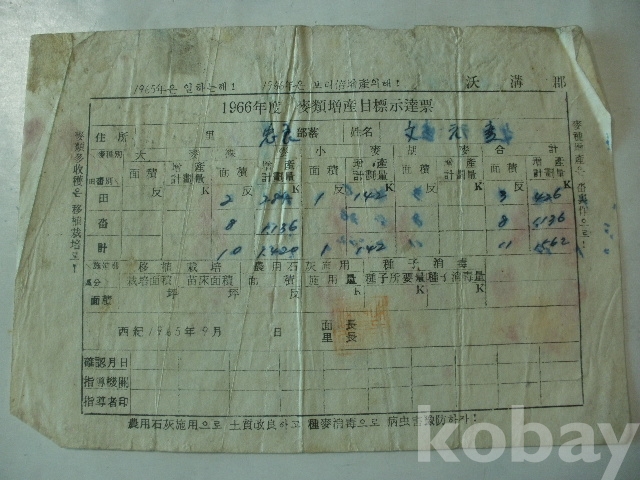 1965年은 일하는해! 1966年은 보리倍增産의해! 沃溝郡
1966年度 麥類增産目標示達票
住所 里 部落 姓名 文
麥種別 大麥 裸麥 小麥 胡麥 合計
田畓別 面積 增産計劃量 面積 增産計劃量 面積 增産計劃量 面積 增産計劃量 面積 增産計劃量
反 K 反 K 反 K 反 K
田 2 284 1 142 3 426
畓 8 1136 8 1136
計 10 1420 1 142 11 1562
移植栽培 農用石灰施用 種子消毒
區分 栽培面積 苗床面積 面積 施用量 種子所要量 種子消毒量
面積 坪 坪 反 K K K
西紀1965年9月 日 面長
里長
確認月日
指導機關
指導者印
農用石灰施用으로 土質改良하고 種麥消毒으로 病虫害豫防하자!
麥類多收穫은 移植栽培로!
kobay